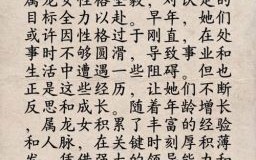 属龙女性格坚毅，对认定的
目标全力以赴。早年，她们
或许因性格过于刚直，在处
事时不够圆滑，导致事业和
生活中遭遇一些阻碍。但也
正是这些经历，让她们不断
反思和成长。随着年龄增长
，属龙女积累了丰富的经验
和人脉，在全毅时刻厚积薄